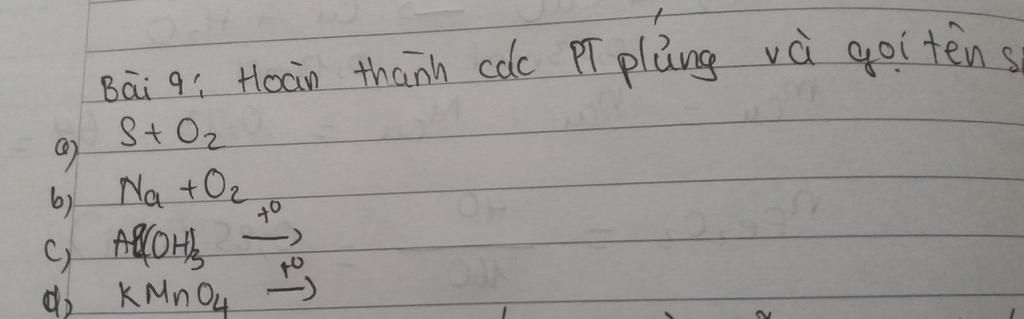 Bài 9: Hoàn thành các PT p/ứng và gọi tên
a) S + O2
b) Na + O2
c) Al(OH)3 t° →
d) KMnO4 t° →